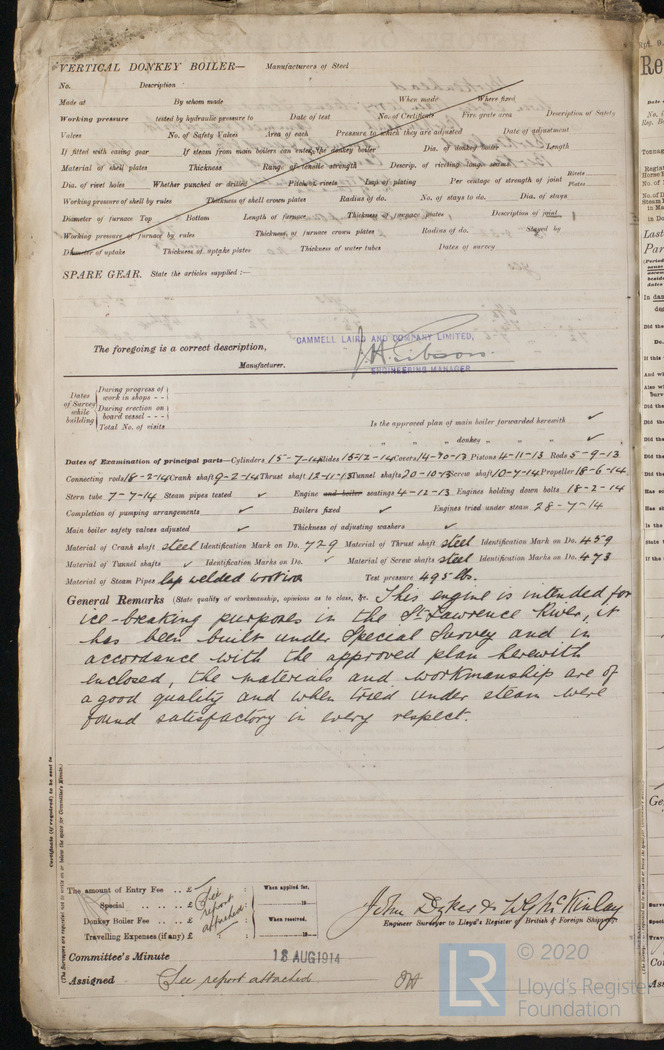 VERTICAL DONKEY BOILER— Manufacturers of Steel
No. Description
Made at By whom made When made Where fixed
Working pressure tested by hydraulic pressure to Date of test No. of Certificate Fire grate area Description of Safety
Valves No. of Safety Valves Area of each Pressure to which they are adjusted Date of adjustment
If fitted with easing gear If steam from main boilers can enter the donkey boiler Dia. of donkey boiler Length
Material of shell plates Thickness Range of tensile strength Descrip. of riveting long. seams
Dia. of rivet holes Whether punched or drilled Pitch of rivets Lap of plating Per centage of strength of joint Rivets Plates
Working pressure of shell by rules Thickness of shell crown plates Radius of do. No. of stays to do. Dia. of stays
Diameter of furnace Top Bottom Length of furnace Thickness of furnace plates Description of joint
Working pressure of furnace by rules Thickness of furnace crown plates Radius of do. Stayed by
Diameter of uptake Thickness of uptake plates Thickness of water tubes Dates of survey
SPARE GEAR. State the articles supplied :—
The foregoing is a correct description,
CAMMELL LAIRD AND COMPANY LIMITED,
J. H. Gibson.
Manufacturer.
ENGINEERING MANAGER
Dates of Survey while building
During progress of work in shops - -
During erection on board vessel - - -
Total No. of visits
Is the approved plan of main boiler forwarded herewith ✓
" " " donkey " " " ✓
Dates of Examination of principal parts—Cylinders 15-7-14 Slides 15-12-14 Covers 14-10-13 Pistons 4-11-13 Rods 5-9-13
Connecting rods 18-2-14 Crank shaft 9-2-14 Thrust shaft 12-11-13 Tunnel shafts 20-10-13 Screw shaft 10-7-14 Propeller 18-6-14
Stern tube 7-7-14 Steam pipes tested ✓ Engine and boiler seatings 4-12-13 Engines holding down bolts 18-2-14
Completion of pumping arrangements ✓ Boilers fixed ✓ Engines tried under steam 28-7-14
Main boiler safety valves adjusted ✓ Thickness of adjusting washers ✓
Material of Crank shaft steel Identification Mark on Do. 729 Material of Thrust shaft steel Identification Mark on Do. 459
Material of Tunnel shafts ✓ Identification Marks on Do. ✓ Material of Screw shafts steel Identification Marks on Do. 473
Material of Steam Pipes lap welded wot iron Test pressure 495 lbs.
General Remarks (State quality of workmanship, opinions as to class, &c. This engine is intended for
ice-breaking purposes in the St Lawrence River, it
has been built under Special Survey and in
accordance with the approved plan herewith
enclosed, the materials and workmanship are of
a good quality and when tried under steam were
found satisfactory in every respect.
Certificate (if required) to be sent to
(The Surveyors are requested not to write on or below the space for Committee's Minute.)
The amount of Entry Fee . . £ : : When applied for,
Special . . . . . £ : : 19
Donkey Boiler Fee . . . £ : : When received,
Travelling Expenses (if any) £ : : 19
See report attached.
John Dykes & W. G. McKinlay
Engineer Surveyor to Lloyd's Register of British & Foreign Shipping.
Committee's Minute 18 AUG 1914
Assigned See report attached
© 2020
LR
Lloyd's Register
Foundation